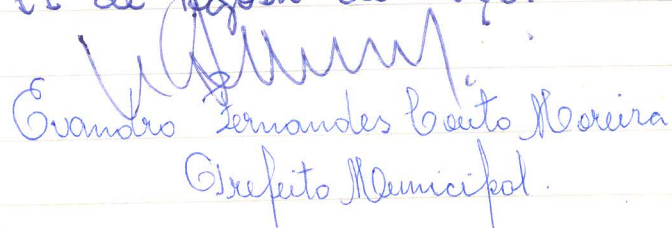 de Agosto de
Evandro Fernandes Couto Moreira
Prefeito Municipal.